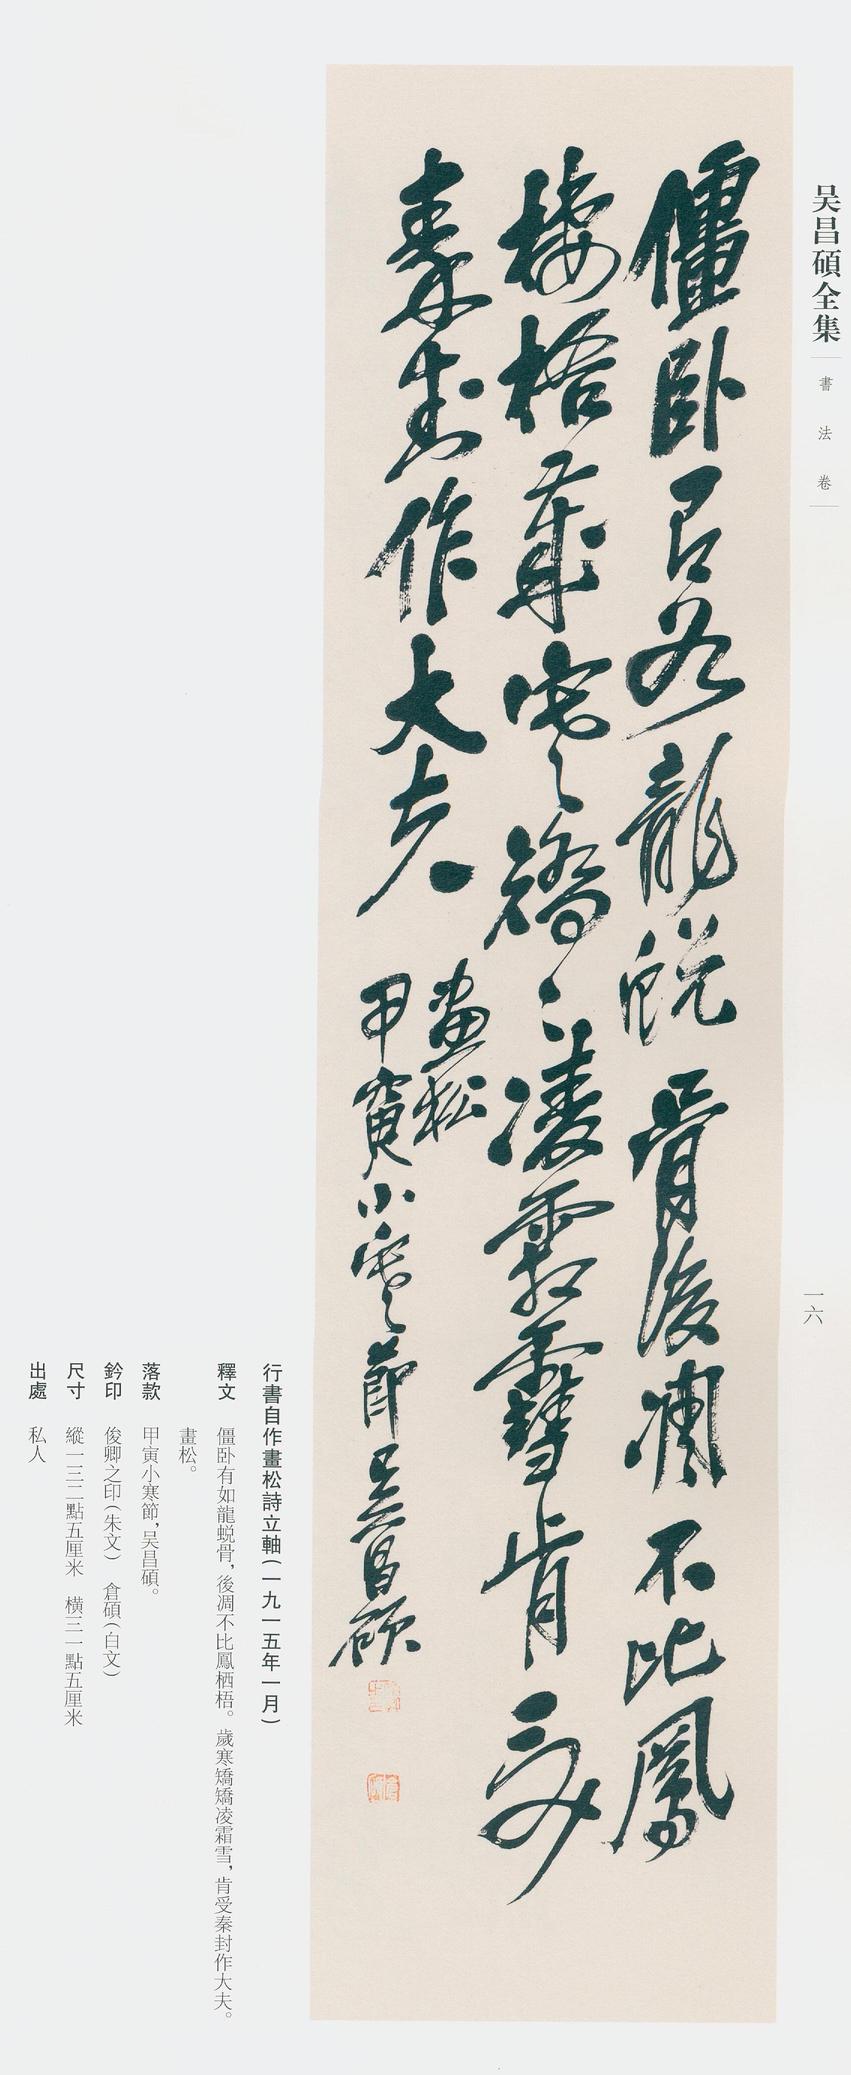 吴昌碩全集
書法卷
一六
僵卧有如龍蜕骨後凋不比鳳
棲梧歲寒矯矯凌霜雪肯受
秦封作大夫
畫松
甲寅小寒節吴昌碩
行書自作畫松詩立軸(一九一五年一月)
釋文 僵卧有如龍蜕骨,後凋不比鳳栖梧。歲寒矯矯凌霜雪,肯受秦封作大夫。
畫松。
落款 甲寅小寒節,吴昌碩。
鈐印 俊卿之印(朱文) 倉碩(白文)
尺寸 縱一三二點五厘米 橫三一點五厘米
出處 私人